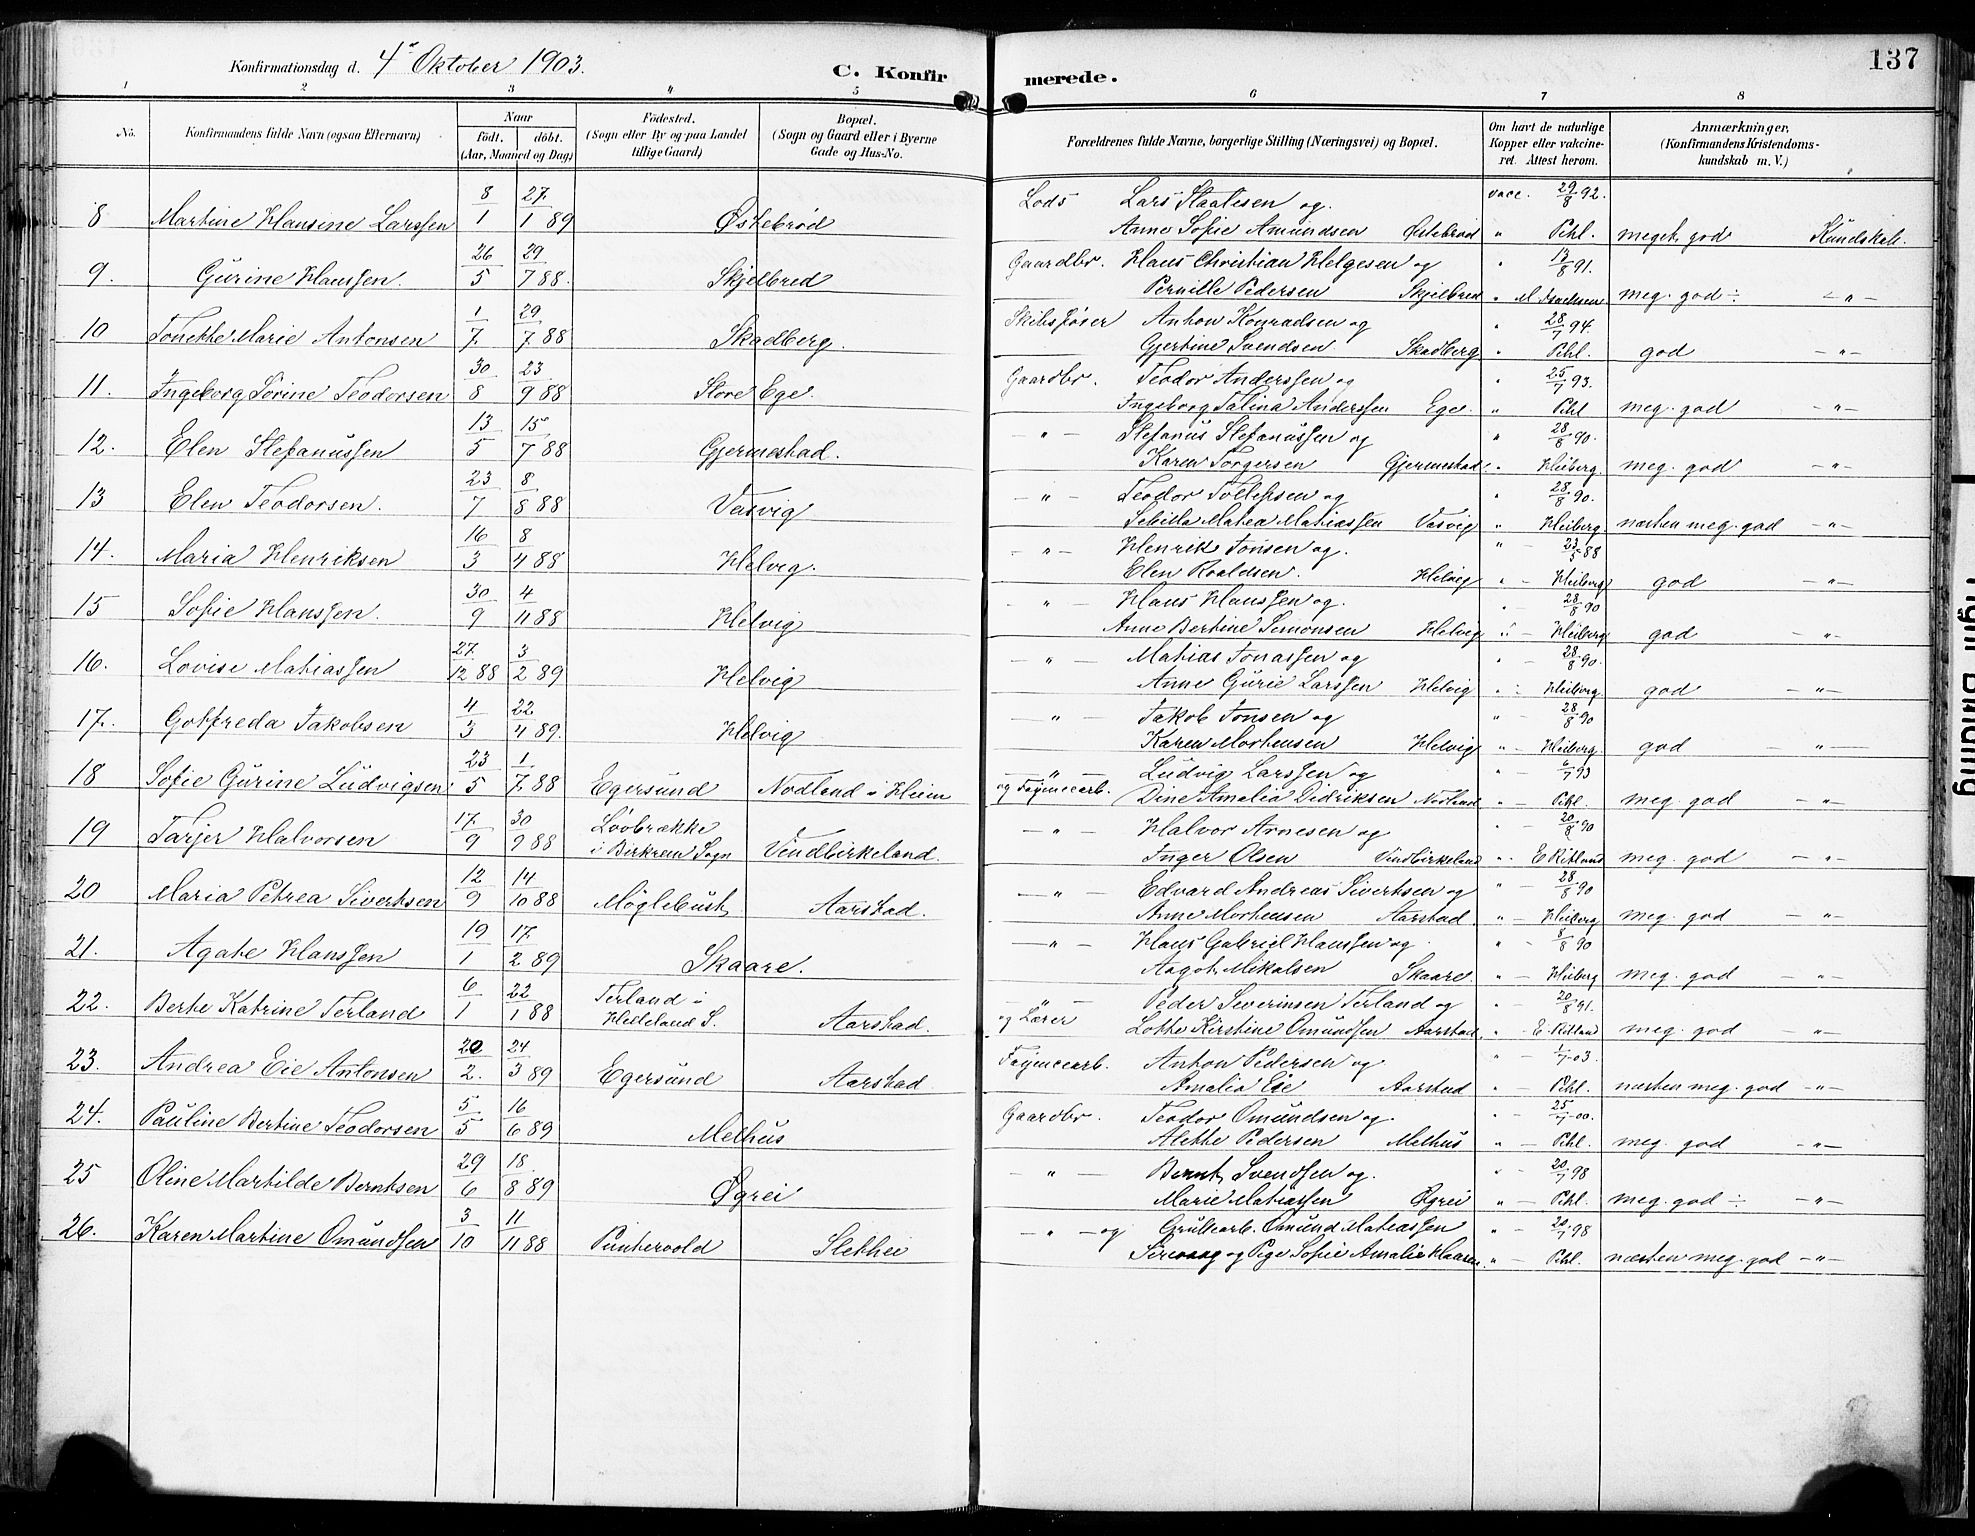 Konfirmationsdag d. 4de Oktober 1903.
C. Konfirmerede.
137
1 2 3 4 5 6 7 8
No. Konfirmandens fulde Navn (ogsaa Efternavn) Naar født. døbt. (Aar, Maaned og Dag) Fødested. (Sogn eller By og paa Landet tillige Gaard) Bopæl. (Sogn og Gaard eller i Byerne Gade og Hus-No. Forældrenes fulde Navne, borgerlige Stilling (Næringsvei) og Bopæl. Om havt de naturlige Kopper eller vakcineret. Attest herom. Anmærkninger. (Konfirmandens Kristendomskundskab m. V.)
8 Martine Hansine Larssen 8/1 27/1 89 Østebrød Lods Lars Staalesen og vacc. 29/8 92.
Anne Sofie Amundsen Østebrød " Pihl. meget god Kundskab.
9. Gurine Hanssen. 26/5 29/7 88. Skjelbred Gaardbr. Hans Christian Helgesen og " 17/8 91.
Pernille Pedersen Skjelbred " M. Isachsen meg. god ÷ - " -
10 Tonette Marie Antonsen 1/7 29/7 88 Skadberg. Skibsfører Anton Konradsen og " 28/7 94.
Gjertine Svendsen. Skadberg " Pihl. god - " -
11. Ingeborg Sorine Teodorsen 30/8 23/9 88 Store Ege. Gaardbr. Teodor Anderssen og " 25/7 93.
Ingeborg Talina Anderssen Ege. " Pihl meg. god - " -
12. Elen Stefanussen 13/5 15/7 88 Gjermestad. - " - Stefanus Stefanussen og " 28/8 90.
Karen Torgersen Gjermestad. " Heiberg. meg. god - " -
13 Elen Teodorsen. 23/7 8/8 88 Vasvig - " - Teodor Tollefsen og " 28/8 90.
Sebilla Matea Matiassen Vasvig " Heiberg. næsten meg. god - " -
14. Maria Henriksen 16/3 8/4 88 Helvig. - " - Henrik Jonsen og. " - 23/5 88
Elen Roaldsen. Helvig " - Heiberg god - " -
15 Sofie Hanssen. 30/9 4/11 88 Helvig - " - Hans Hanssen og. " - 28/8 90
Anne Bertine Simonsen Helvig " - Heiberg god - " -
16. Lovise Matiassen 27/12 88 3/2 89 Helvig - " - Matias Jonassen og " - 28/8 90.
Anne Gurie Larssen Helvig " - Heiberg god - " -
17. Gotfreda Jakobsen 4/3 22/4 89. Helvig - " - Jakob Jonsen og " - 28/8 90
Karen Mortensen Helvig " - Heiberg. god - " -
18 Sofie Gurine Ludvigsen 23/5 1/7 88 Egersund Nodland i Heim - " - Ludvig Larssen og " - 6/7 93
og Fajancearb. Dine Amalia Didriksen Nodland " - Pihl. meg. god - " -
19 Tarjer Halvorsen 17/9 30/9 88 Løvbrække i Birkrem Sogn Vindbirkeland. - " - Halvor Arnesen og " - 20/8 90
Inger Olsen Vindbirkeland " - E. Ritland meg. god - " -
20 Maria Petrea Sivertsen 12/9 14/10 88 Møglebust Aarstad. - " - Edvard Andreas Sivertsen og " - 28/8 90
Anne Mortensen Aarstad. " - Heiberg meg. god - " -
21. Agate Hanssen 19/1 17/2 89 Skaare. - " - Hans Gabriel Hanssen og. " - 8/8 90
Aagot Mikalsen Skaare. " - Heiberg meg. god - " -
22. Berte Katrine Terland 6/1 22/1 88 Terland i Helleland S. Aarstad. - " - Peder Severinsen Terland og " - 20/8 91.
og Lærer Lotte Kirstine Omundsen Aarstad " - E. Ritland meg. god - " -
23. Andrea Eie Antonsen 20/2. 24/3 89 Egersund Aarstad Fajancearb. Anton Pedersen og " - 1/7 03.
Amalia Eie Aarstad " - Pihl. næsten meg. god - " -
24. Pauline Bertine Teodorsen 5/5 16/6 89 Melhus Gaardbr. Teodor Omundsen og " - 25/7 00.
Alette Pedersen Melhus " - Pihl. meg. god - " -
25 Oline Martilde Berntsen 29/6 18/8 89 Øgrei - " - Bernt Svendsen og. " - 20/7 98
Marie Matiassen Øgrei " - Pihl. meg. god ÷ - " -
26. Karen Martine Omundsen 3/10 11/11 88 Puntervold Slettei - " - og Grubearb. Omund Matiassen " - 20/7 98
og Pige Sofie Amalie Haaren. " - Pihl. næsten meg. god - " -